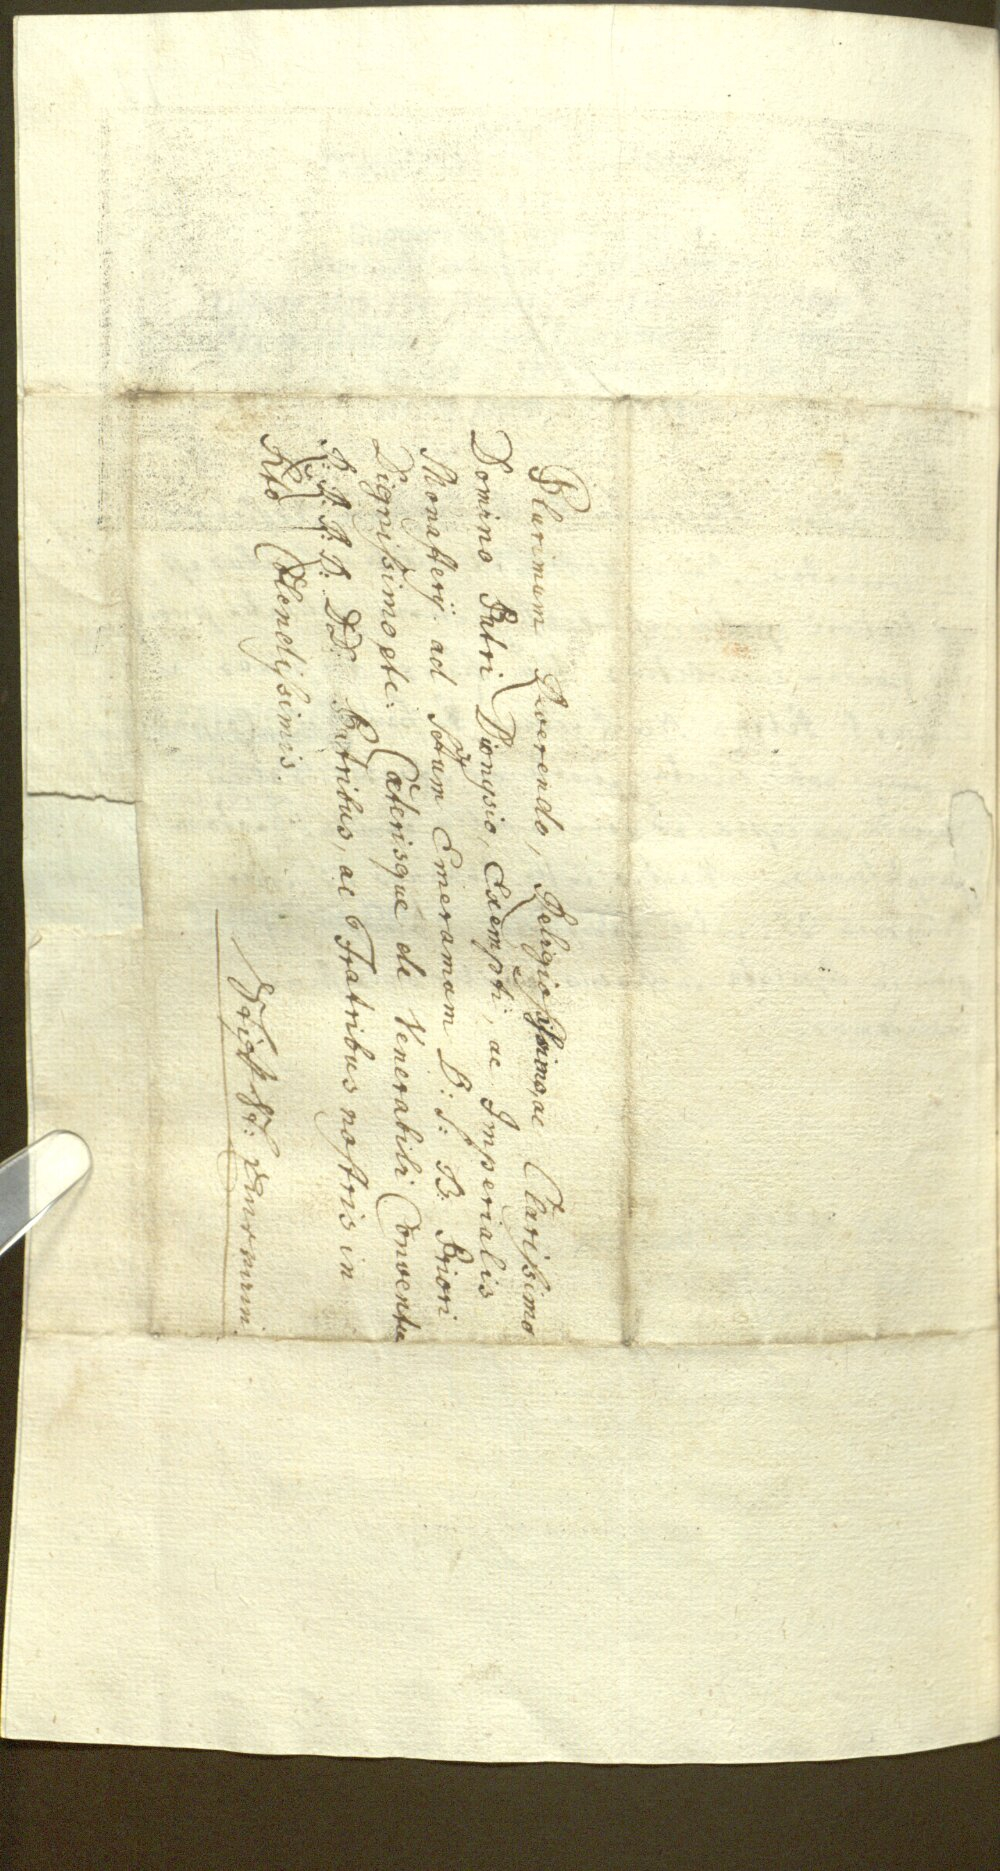 Plurimum Rverendo, Religiosissimo, ac Clarissimo
Domino Patri Dionysio, Exempti, ac Imperialis
Monasterij ad Sctum Emeramam D: S: B. Priori
Dignissimo etc: Cæterisque de Venerabili Conventu
R: R: R: R: DD: Patribus, ac Fratribus nostris in
Xto Colendissimis.
St: Emeramm.